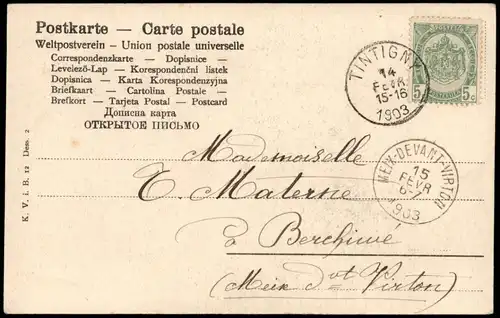 Postkarte — Carte postale
Weltpostverein - Union postale universelle
Correspondenzkarte — Dopisnice —
Levelező-Lap — Korespondenční lístek
Dopisnica — Karta Korespondenzyjna
Briefkaart — Cartolina Postale —
Brefkort — Tarjeta Postal — Postcard
Дописна карта
ОТКРЫТОЕ ПИСЬМО
TINTIGNY
14
FEVR
15-16
1903
5c 5c
K. V. i. B. 12 Dess. 2
MEIX-DEVANT-VIRTON
15
FEVR
6-7
1903
Mademoiselle
E. Materne
à Berchiwé
(Meix dvt Virton)